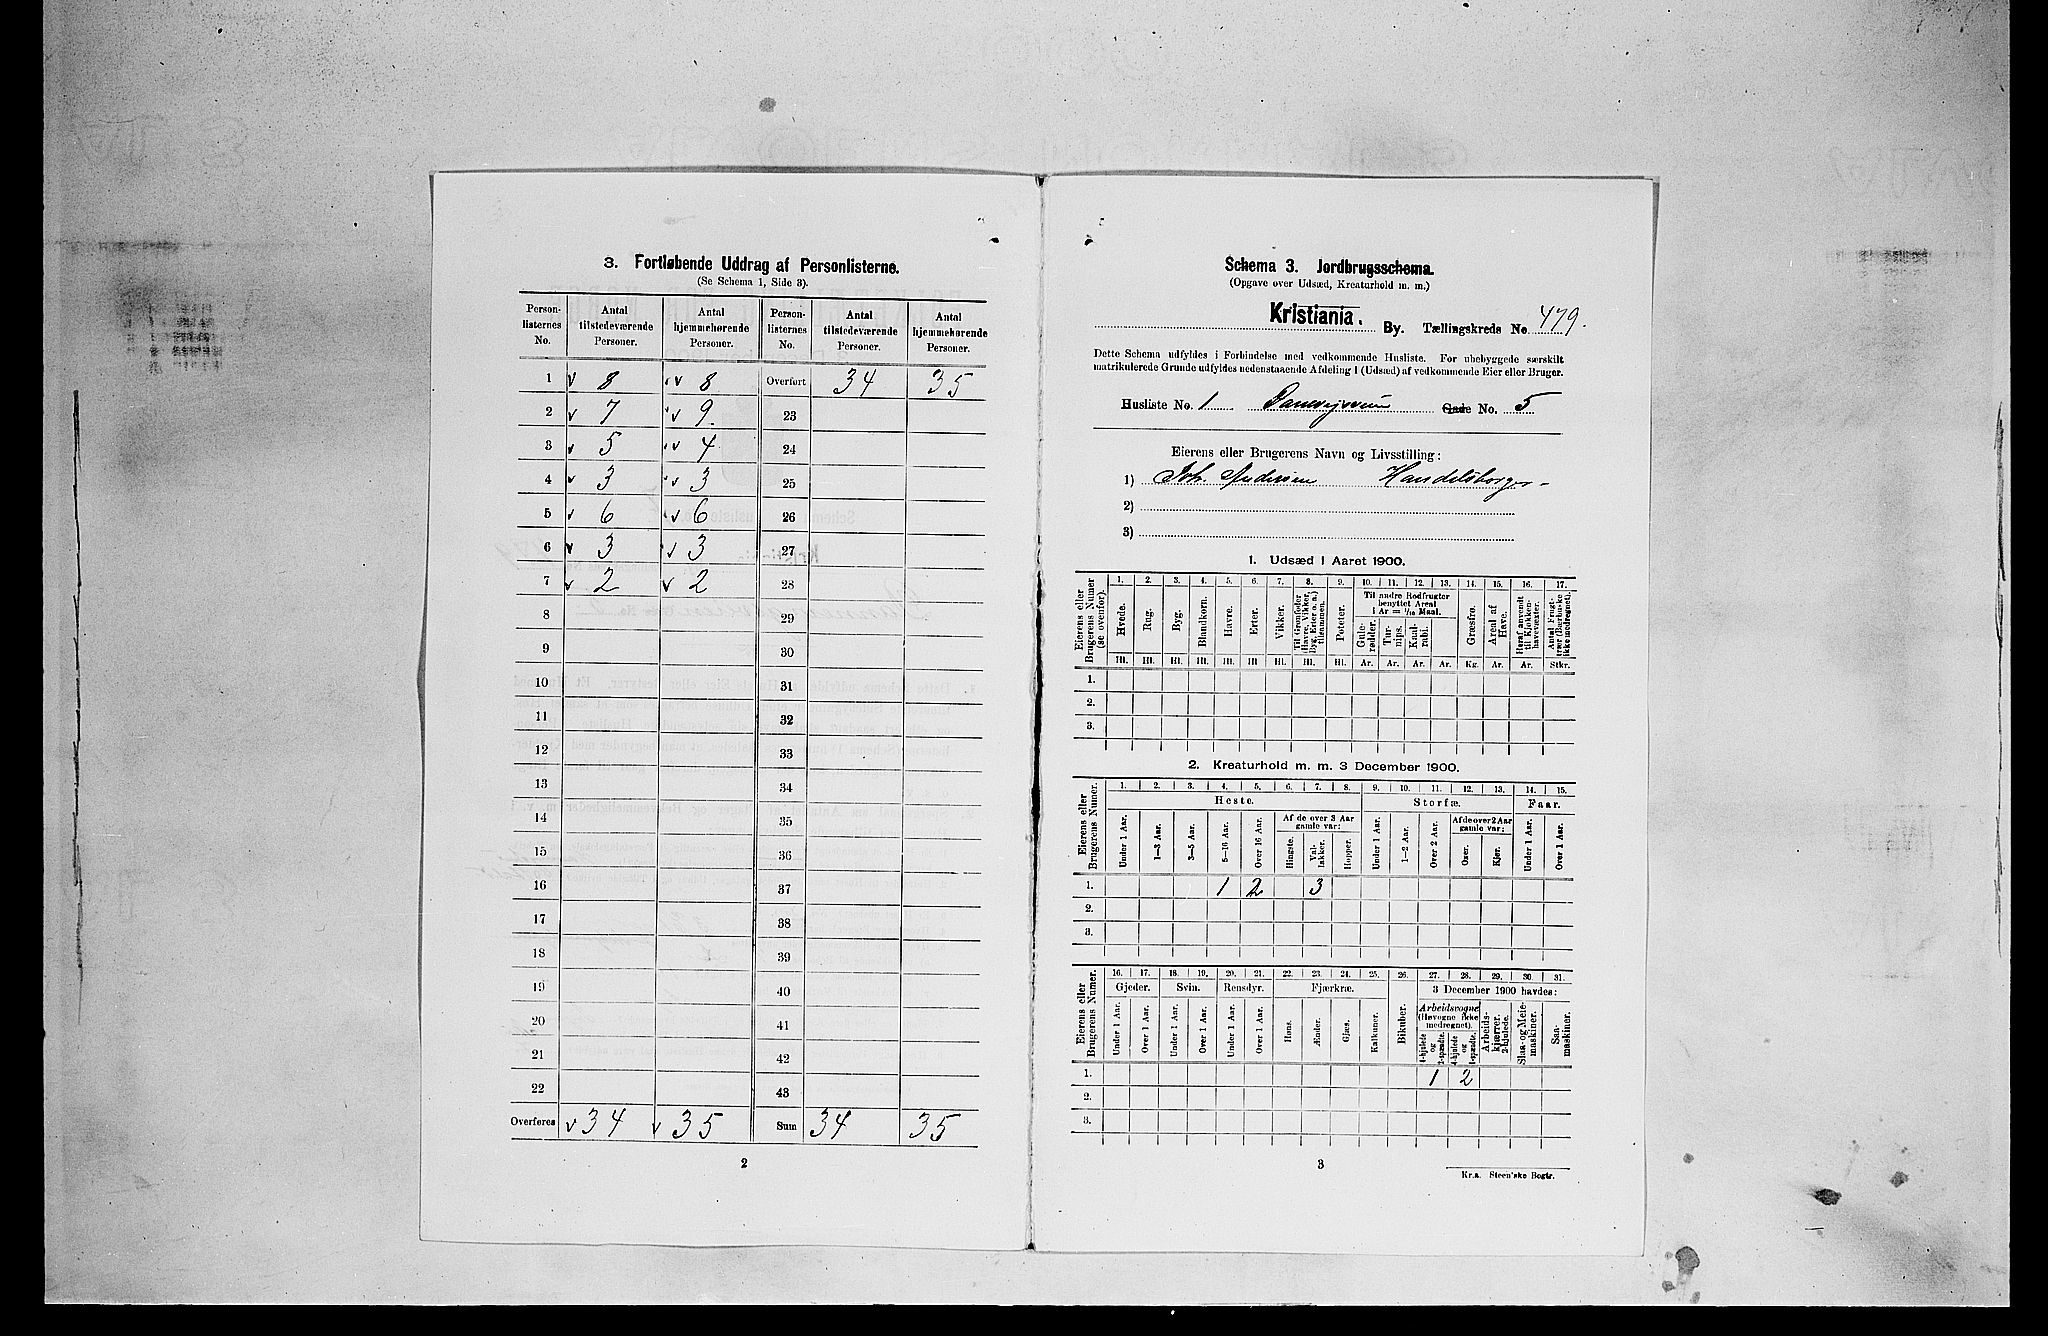 3. Fortløbende Uddrag af Personlisterne.
(Se Schema 1, Side 3).
Person-listernes No. | Antal tilstedeværende Personer. | Antal hjemmehørende Personer. | Person-listernes No. | Antal tilstedeværende Personer. | Antal hjemmehørende Personer.
1 v 8 v 8 Overført 34 35
2 v 7 v 9 23
3 v 5 v 4 24
4 v 3 v 3 25
5 v 6 v 6 26
6 v 3 v 3 27
7 v 2 v 2 28
8 29
9 30
10 31
11 32
12 33
13 34
14 35
15 36
16 37
17 38
18 39
19 40
20 41
21 42
22 43
Overføres v 34 v 35 Sum 34 35
2
Schema 3. Jordbrugsschema.
(Opgave over Udsæd, Kreaturhold m. m.)
Kristiania. By. Tællingskreds No. 479.
Dette Schema udfyldes i Forbindelse med vedkommende Husliste. For ubebyggede særskilt
matrikulerede Grunde udfyldes nedenstaaende Afdeling 1 (Udsæd) af vedkommende Eier eller Bruger.
Husliste No. 1 Gade No. 5
Eierens eller Brugerens Navn og Livsstilling:
1) Joh. Andersen Handelsborger
2)
3)
1. Udsæd i Aaret 1900.
Eierens eller Brugerens Numer (se ovenfor).
1. 2. 3. 4. 5. 6. 7. 8. 9. 10. 11. 12. 13. 14. 15. 16. 17.
Hvede. Rug. Byg. Blandkorn. Havre. Erter. Vikker. Til Grønfoder (Havre, Vikker, Byg, Erter o. a.) tilsammen. Poteter.
Til andre Rodfrugter benyttet Areal i Ar = 1/10 Maal.
Gule-rødder. Tur-nips. Kaal-rabi. Græsfrø. Areal af Have. Heraf anvendt til Kjøkken-havevæxter. Antal Frugt-trær (Bærbuske ikke medregnet).
Hl. Hl. Hl. Hl. Hl. Hl. Hl. Hl. Hl. Ar. Ar. Ar. Ar. Kg. Ar. Ar. Stkr.
1.
2.
3.
2. Kreaturhold m. m. 3 December 1900.
Eierens eller Brugerens Numer.
1. 2. 3. 4. 5. 6. 7. 8. 9. 10. 11. 12. 13. 14. 15.
Heste. Storfæ. Faar.
Af de over 3 Aar gamle var: Af de over 2 Aar gamle var:
Under 1 Aar. 1—3 Aar. 3—5 Aar. 5—16 Aar. Over 16 Aar. Hingste. Val-lakker. Hopper. Under 1 Aar. 1—2 Aar. Over 2 Aar. Oxer. Kjør. Under 1 Aar. Over 1 Aar.
1. 1 2 3
2.
3.
Eierens eller Brugerens Numer.
16. 17. 18. 19. 20. 21. 22. 23. 24. 25. 26. 27. 28. 29. 30. 31.
Gjeder. Svin. Rensdyr. Fjærkræ. Bikuber. 3 December 1900 havdes:
Arbeidsvogne (Høvogne ikke medregnet).
Under 1 Aar. Over 1 Aar. Under 1 Aar. Over 1 Aar. Under 1 Aar. Over 1 Aar. Høns. Ænder. Gjæs. Kalkuner. 4-hjulede og 2-spændte. 4-hjulede og 1-spændte. Arbeids-kjærrer, 2-hjulede. Slaa- og Meie-maskiner. Saa-maskiner.
1. 1 2
2.
3.
3
Kr.a. Steen'ske Bogtr.